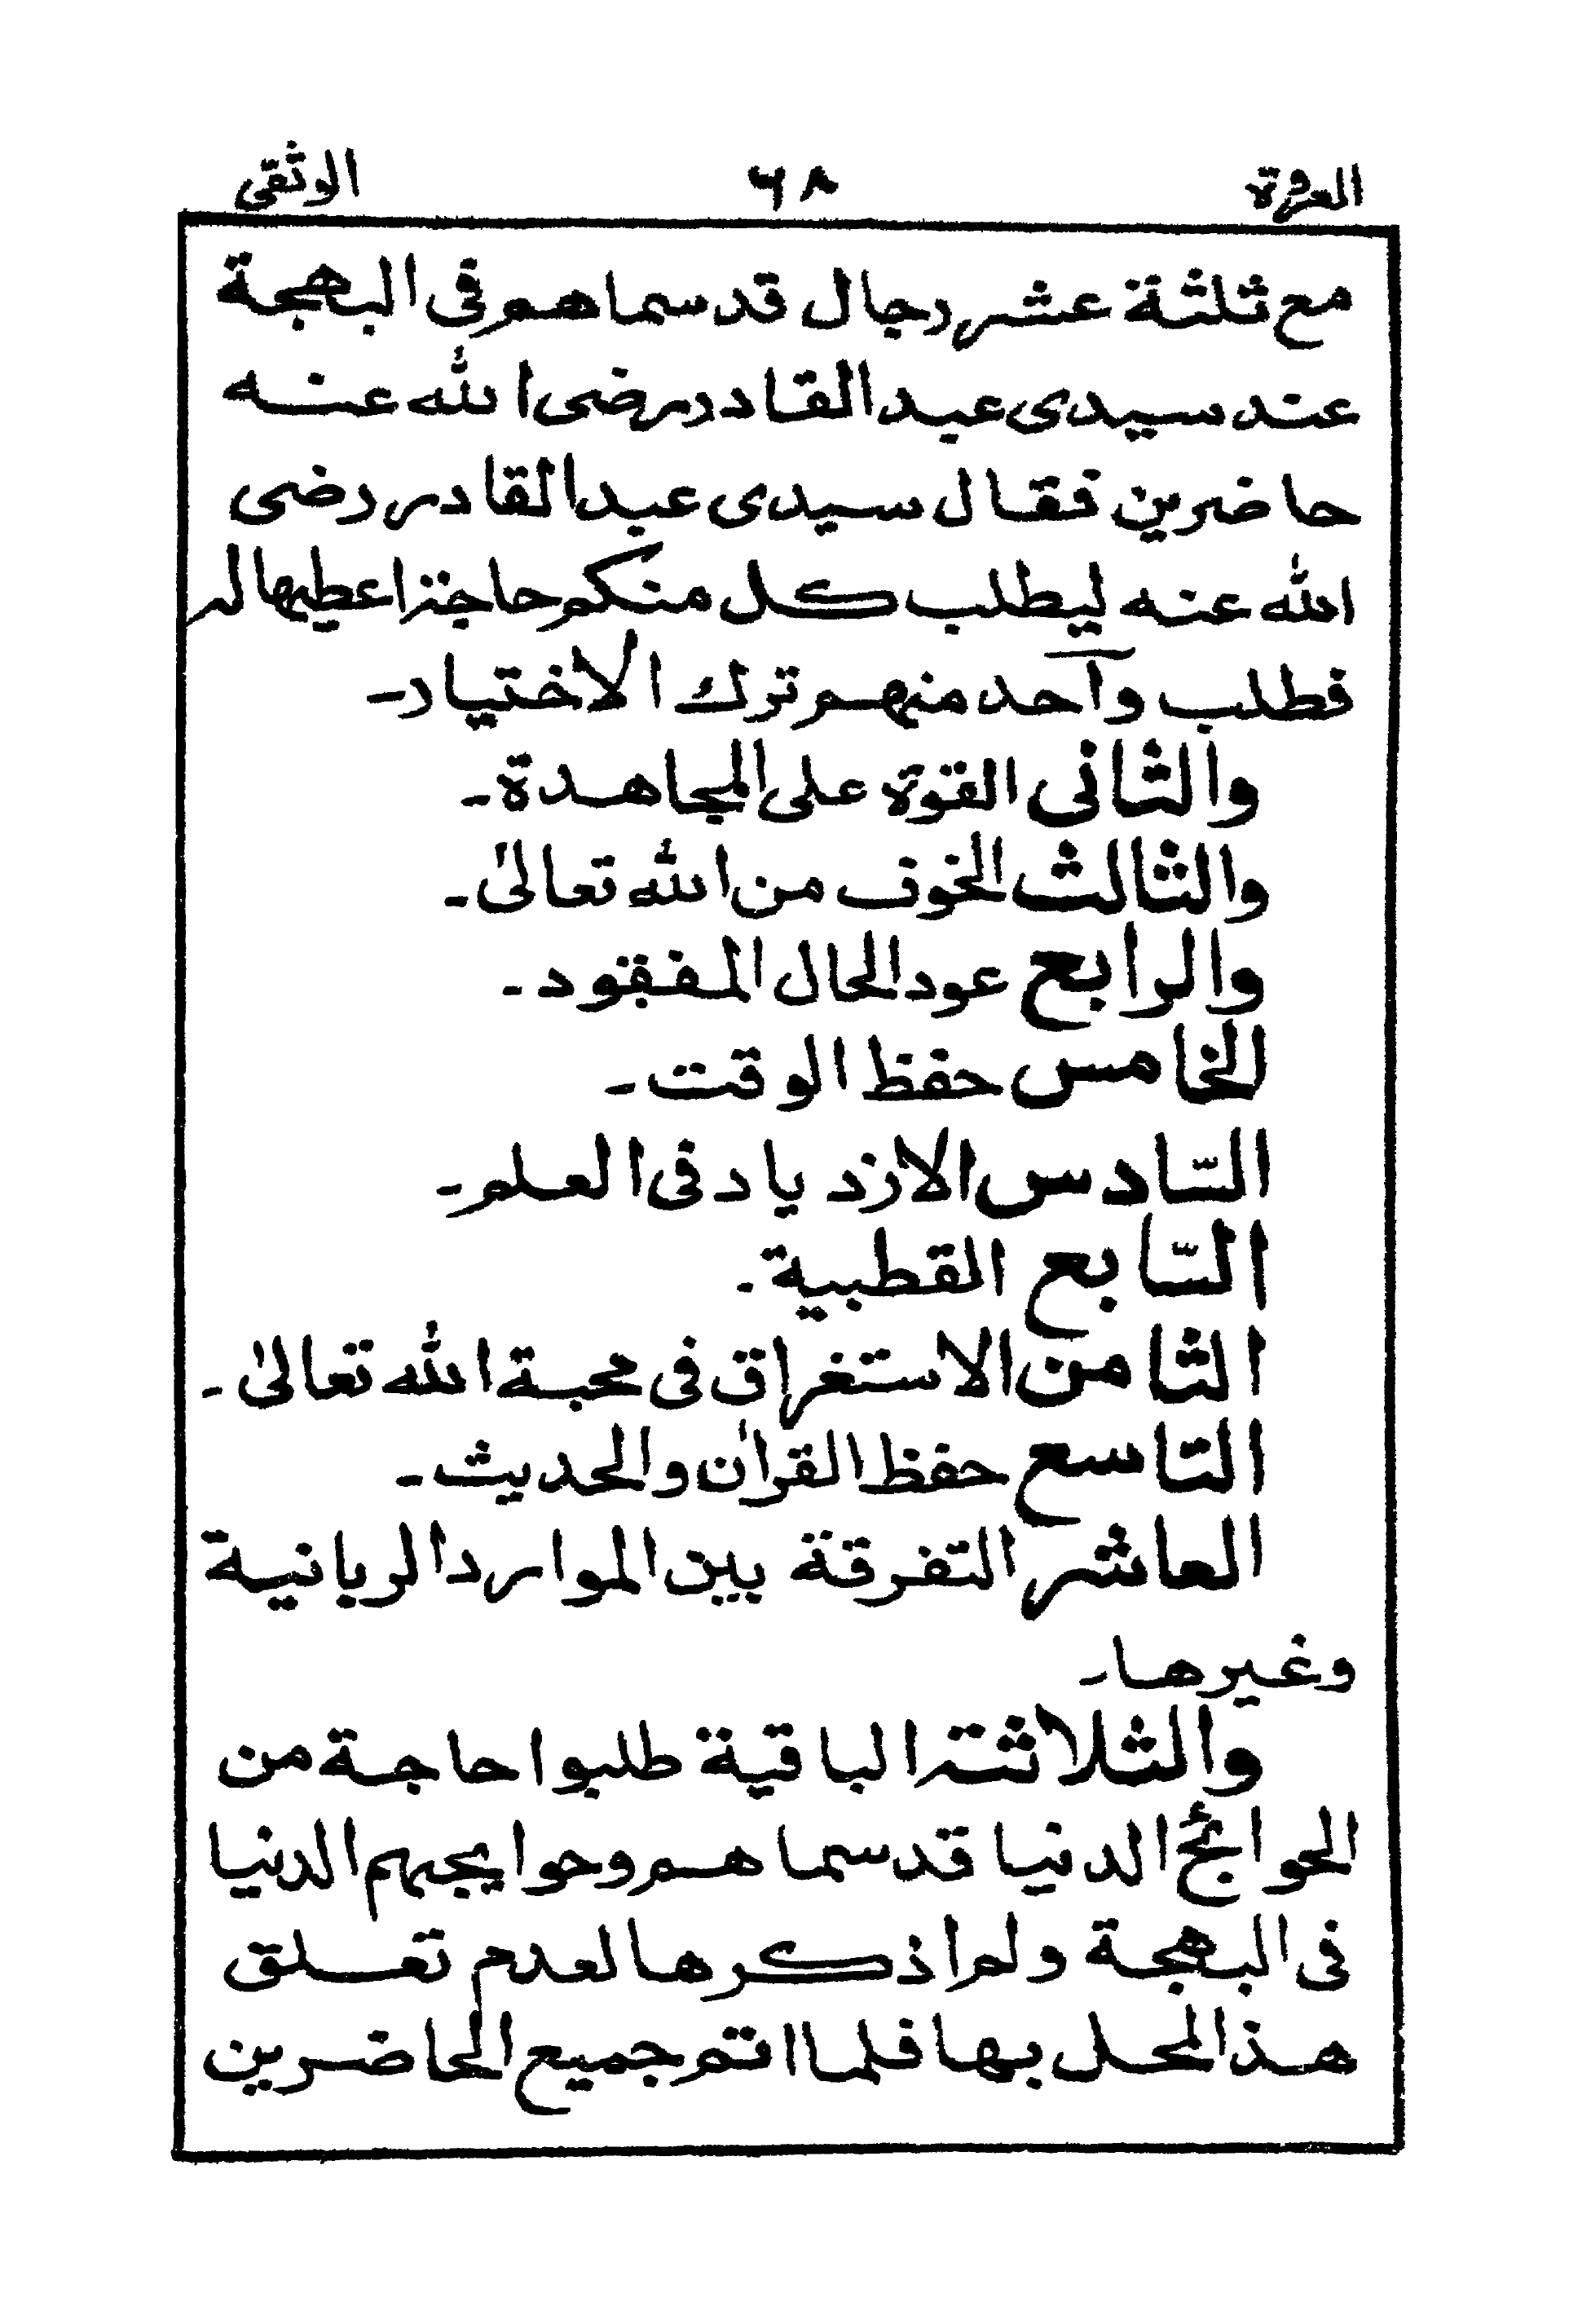 العروة ٦٨ الوثقى
مع ثلثة عشر رجال قد سماهم فى البهجة
عند سيدى عبد القادر رضى الله عنه
حاضرين فقال سيدى عبد القادر رضى
الله عنه ليطلب كل منكم حاجة اعطيها له
فطلب واحد منهم ترك الاختيار۔
والثانى القوة على المجاهدة۔
والثالث الخوف من الله تعالىٰ۔
والرابع عود الحال المفقود۔
الخامس حفظ الوقت۔
السّادس الازدياد فى العلم۔
السّابع القطبية۔
الثامن الاستغراق فى محبة الله تعالىٰ۔
التاسع حفظ القراٰن والحديث۔
العاشر التفرقة بين الموارد الربانية
وغيرها۔
والثلاثة الباقية طلبوا حاجة من
الحوائج الدنيا قد سماهم وحوايجهم الدنيا
فى البهجة ولم اذكرها لعدم تعلق
هذا المحل بها فلما اتم جميع الحاضرين